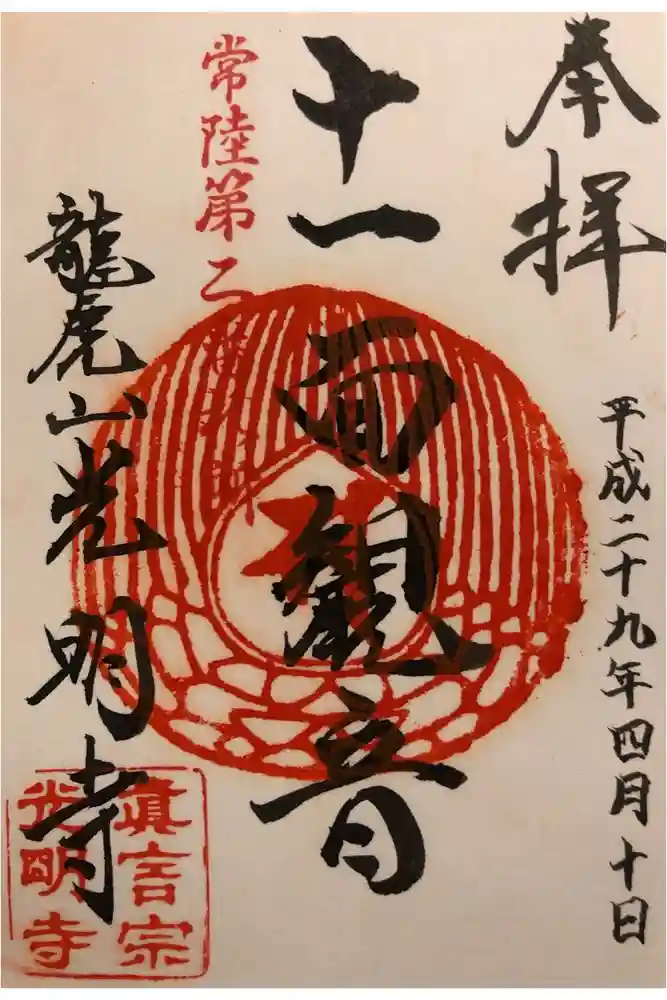 奉拝
平成二十九年四月十日
十一面観音
常陸第二
龍虎山光明寺
眞言宗
光明寺